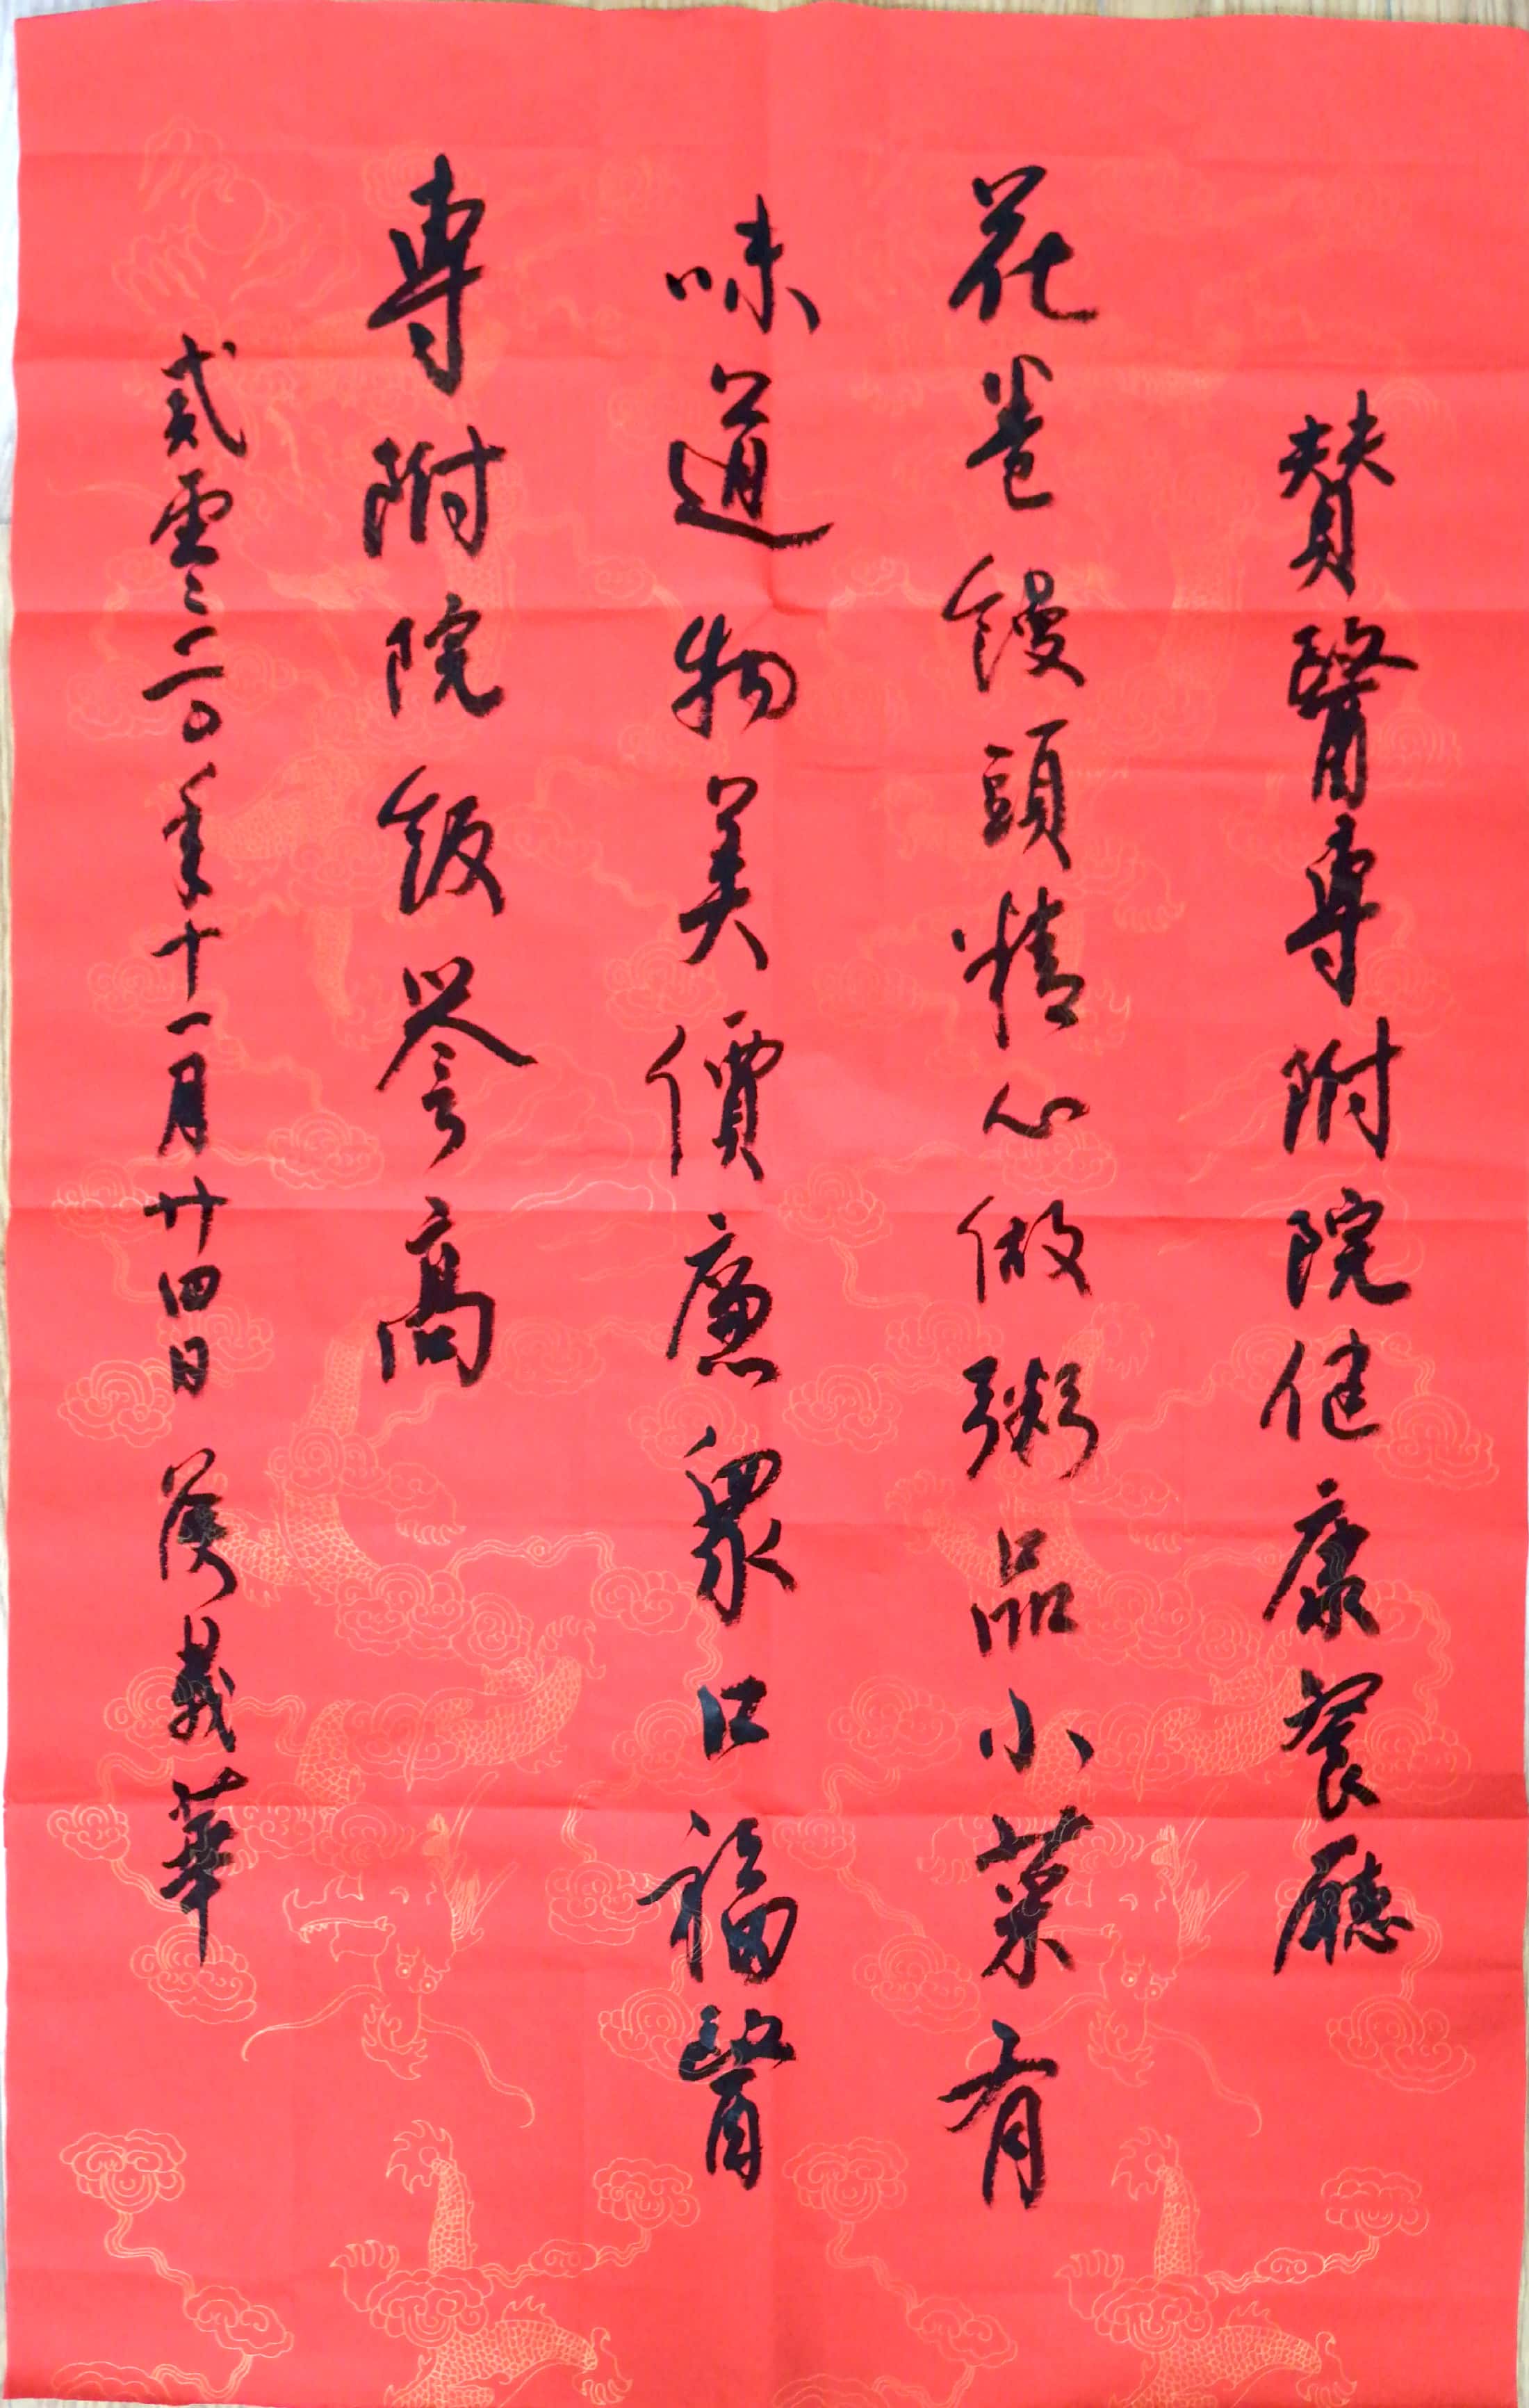 賛醫專附院健康餐廳
花卷饅頭精心做粥品小菜有
味道物美價廉眾口福醫
專附院飯譽高
貳零二〇年十一月廿四日 義華